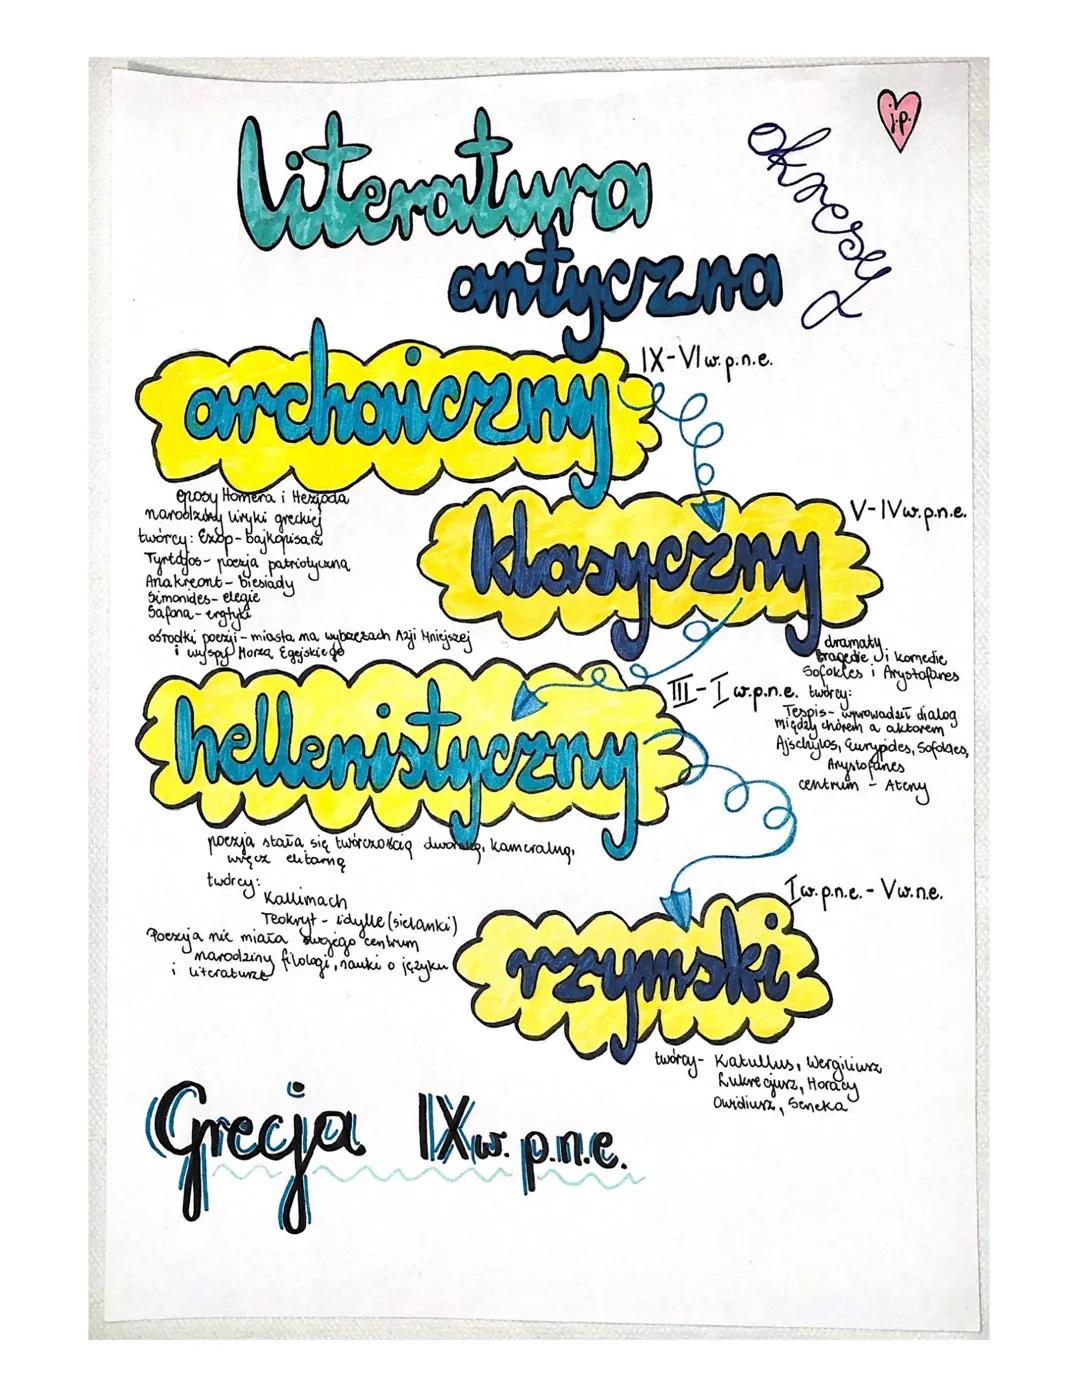 j.p.
okresy
literatura
antyczna
archaiczny
IX-VI w.p.n.e.
eposy Homera i Hezjoda
narodziny liryki greckiej
twórcy: Ezop - bajkopisarz
Tyrtajos - poezja patriotyczna
Anakreont - biesiady
Simonides - elegie
Safona - erotyki
ośrodki poezji - miasta na wybrzeżach Azji Mniejszej
i wyspy Morza Egejskiego
klasyczny
V-IV w.p.n.e.
dramaty
tragedie i komedie
Sofokles i Arystofanes
twórcy:
Tespis - wprowadził dialog
między chórem a aktorem
Ajschylos, Eurypides, Sofokles,
Arystofanes
centrum - Ateny
hellenistyczny
III-I w.p.n.e.
poezja stała się twórczością dworską, kameralną,
wręcz elitarną
twórcy:
Kallimach
Teokryt - idylle (sielanki)
Poezja nie miała swojego centrum
narodziny filologi, nauki o języku
i literaturze
rzymski
I w.p.n.e. - V w.n.e.
twórcy - Katullus, Wergiliusz
Lukrecjusz, Horacy
Owidiusz, Seneka
Grecja IX w. p.n.e.